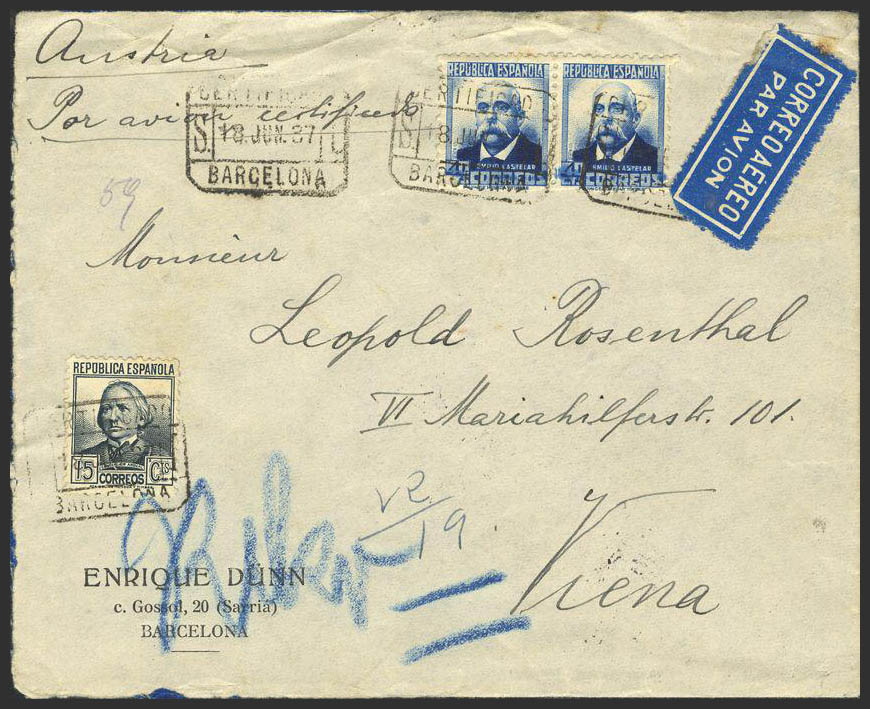 Austria
Por avion certificado
CERTIFICADO
18 JUN. 37
BARCELONA
REPÚBLICA ESPAÑOLA
EMILIO CASTELAR
40 CORREOS
CERTIFICADO
18 JUN
BARCELONA
REPÚBLICA ESPAÑOLA
EMILIO CASTELAR
40 CORREOS
CORREO AEREO
PAR AVION
59
Monsieur
Leopold Rosenthal
VI Mariahilferstr. 101.
Viena
REPÚBLICA ESPAÑOLA
15 CORREOS Cts
BARCELONA
19
ENRIQUE DÜNN
c. Gossol, 20 (Sarriá)
BARCELONA